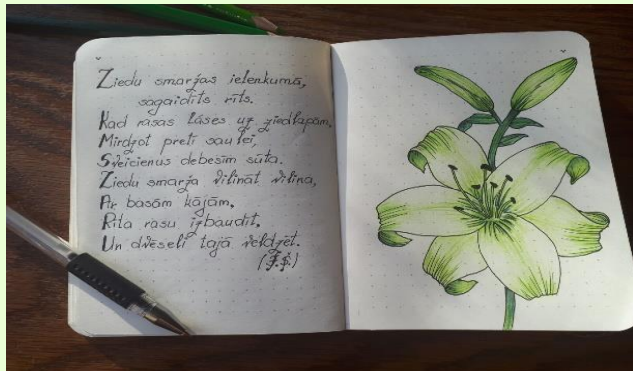 Ziedu smaržas ielenkumā,
sagaidīts rīts.
Kad rasas lāses uz ziedlapām,
Mirdzot pretī saulei,
Sveicienus debesīm sūta.
Ziedu smarža vilināt vilina,
Ar basām kājām,
Rīta rasu izbaudīt,
Un dvēseli tajā veldzēt.